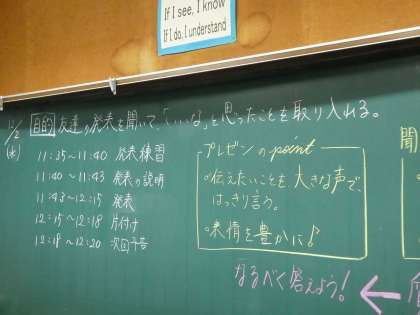 If I see, I know
If I do, I understand
12/2
(水)
目的 友達の発表を聞いて、「いいな」と思ったことを取り入れる。
11:35〜11:40 発表練習
11:40〜11:43 発表の説明
11:43〜12:15 発表
12:15〜12:18 片付け
12:18〜12:20 次回予告
プレゼンのpoint
・伝えたいことを大きな声で、
はっきり言う。
・表情を豊かに♪
なるべく答えよう!
聞